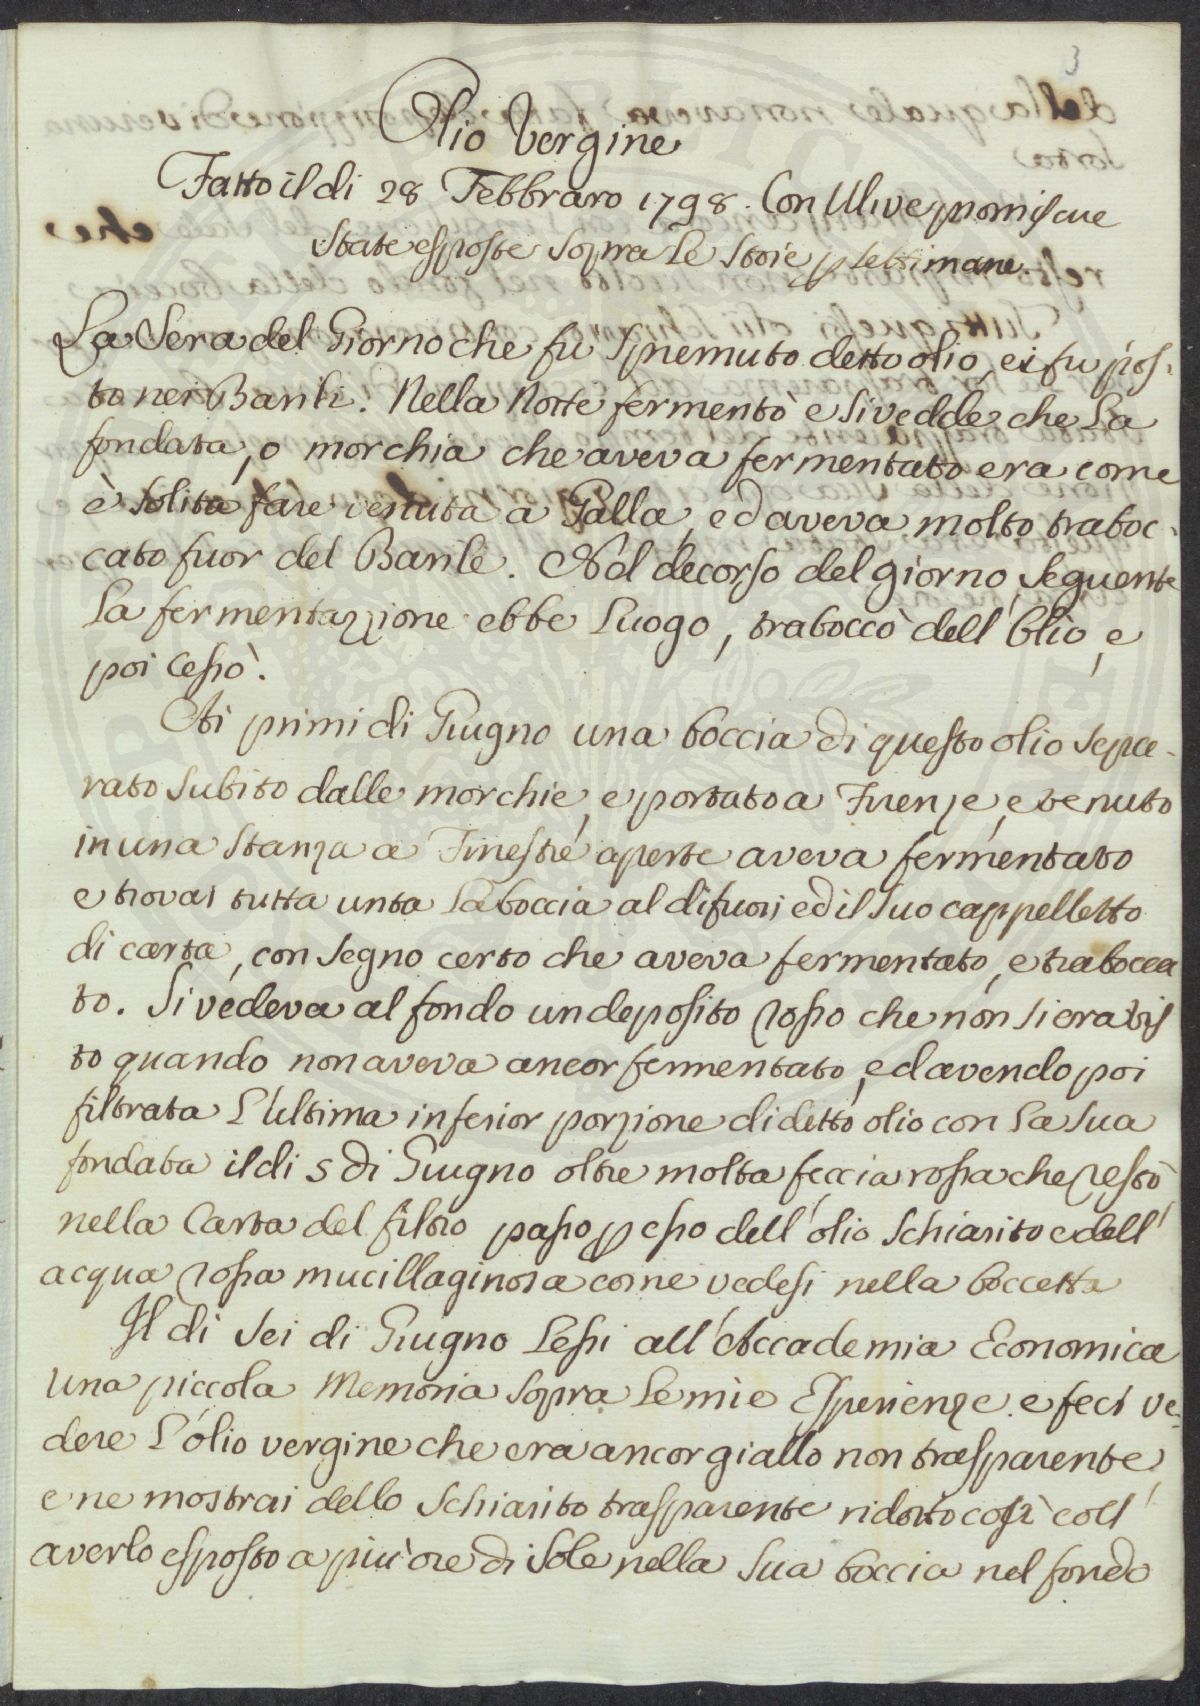 3
Olio Vergine
Fatto il di 28 Febbraro 1798. Con Ulive promiscue
State esposte sopra le Stoie p settimane.
La Sera del Giorno che fu Spremuto detto olio, ei fu pos-
to nei Barili. Nella Notte fermentò e si vedde che la
fondata, o morchia che aveva fermentato era come
è solita fare venuta a Galla, ed aveva molto traboc-
cato fuor del Barile. Nel decorso del giorno Seguente
la fermentazzione ebbe luogo, traboccò dell'Olio, e
poi cessò.
Ai primi di Giugno una boccia di questo olio sepa-
rato subito dalle morchie, e portato a Firenze, e tenuto
in una stanza a Finestre aperte aveva fermentato
e trovai tutta unta la boccia al difuori ed il suo cappelletto
di carta, con segno certo che aveva fermentato, e trabocca
to. Si vedeva al fondo un deposito rosso che non si era vis
to quando non aveva ancor fermentato, ed avendo poi
filtrata l'ultima inferior porzione di detto olio con la sua
fondata il di 5 di Giugno oltre molta feccia rossa che restò
nella Carta del filtro passo p esso dell'olio Schiarito e dell'
acqua rossa mucillaginosa come vedesi nella boccetta
Il di sei di Giugno Lessi all'Accademia Economica
una piccola Memoria sopra le mie Esperienze e feci ve-
dere l'olio vergine che era ancor giallo non trasparente
e ne mostrai dello Schiarito trasparente ridotto così coll'
averlo esposto a più ore di Sole nella sua boccia nel fondo